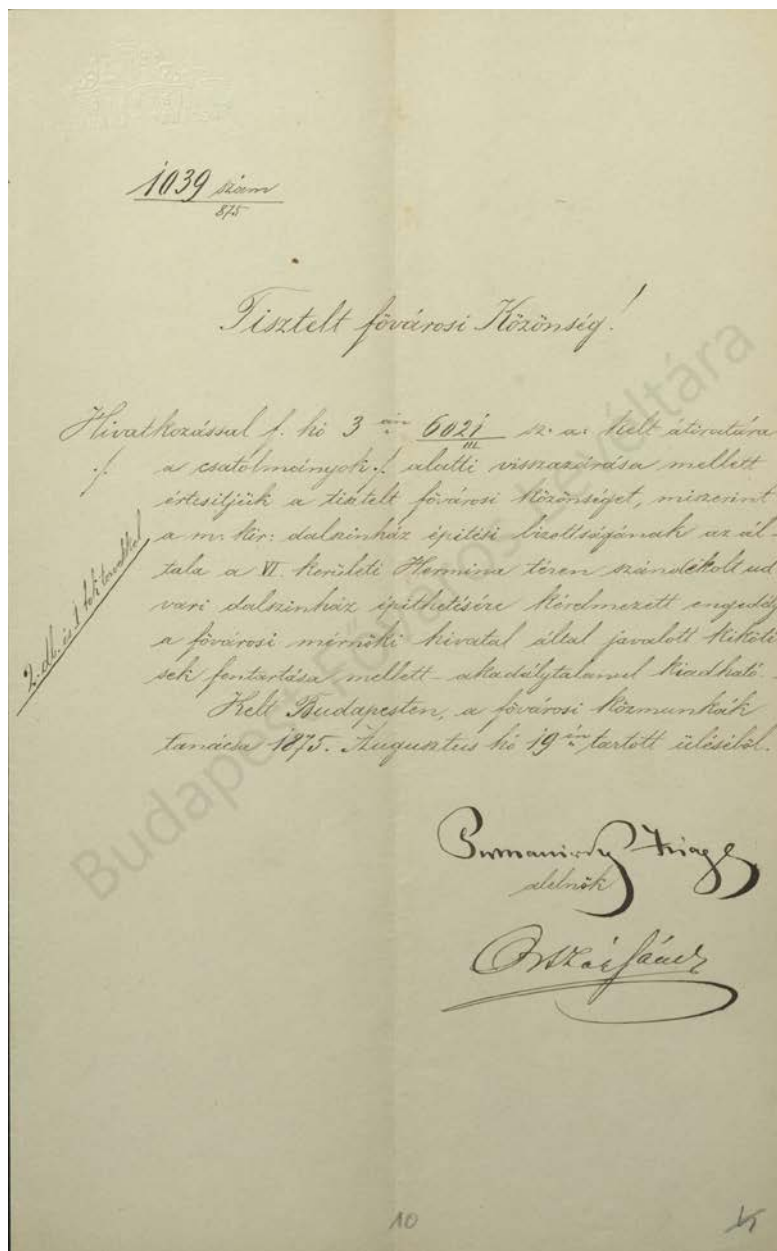 1039 szám
875
Tisztelt fővárosi Közönség!
Hivatkozással f. hó 3 án 6021 sz. a. kelt átiratára
III.
·/. a csatolmányok ·/. alatti visszazárása mellett
értesitjük a tisztelt fővárosi közönséget, miszerint
a m. kir: dalszinház épitési bizottságának az ál-
tala a VI. kerületi Hermina téren szándékolt ud
vari dalszinház épithetésére kérelmezett engedély
a fővárosi mérnöki hivatal által javalott kiköté
sek fentartása mellett – akadálytalanul kiadható. –
Kelt Budapesten, a fővárosi közmunkák
tanácsa 1875. Augusztus hó 19 én tartott üléséből.
2. db. és 1 tek. tervekkel
alelnök
10
Budapest Főváros Levéltára